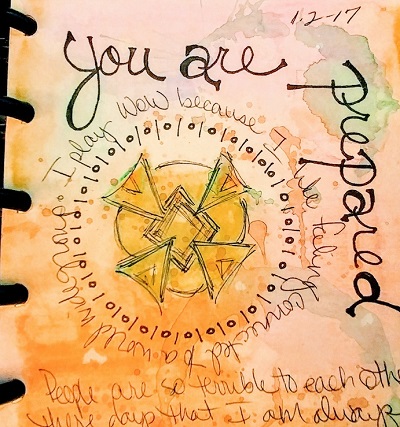 1-2-17
you are
prepared
I play WoW because I like feeling connected to a world wide group.
People are so terrible to each othe
these days that I am always